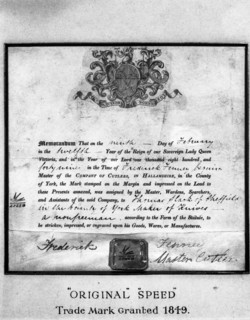 Memorandum That on the ninth Day of February
in the twelfth Year of the Reign of our Sovereign Lady Queen
Victoria, and in the Year of our Lord one thousand eight hundred, and
forty nine in the Time of Frederick
Master of the COMPANY OF CUTLERS, IN HALLAMSHIRE, in the County of
York, the Mark stamped on the Margin and impressed on the Lead to
these Presents annexed, was assigned by the Master, Wardens, Searchers,
and Assistants of the said Company, to Thomas of Sheffield
in the County of York Maker of Knives
a nonfreeman according to the Form of the Statute, to
be stricken, impressed, or engraved upon his Goods, Wares, or Manufactures.
Frederick
Master Cutler
"ORIGINAL" "SPEED"
Trade Mark Granbed 1849.